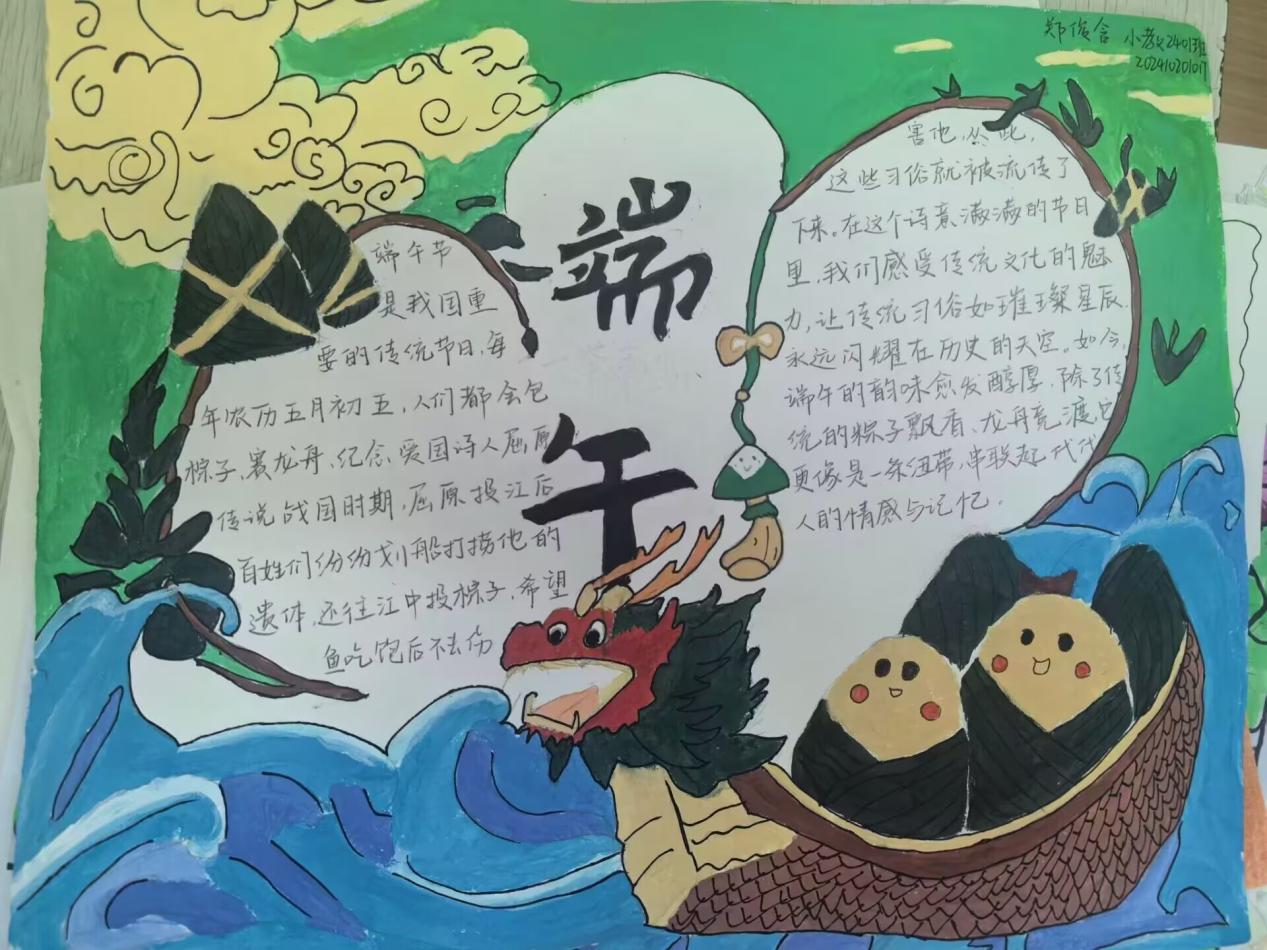 郑俊含 小教2401班
202410201017
端午
端午节
是我国重
要的传统节日,每
年农历五月初五,人们都会包
粽子、赛龙舟、纪念爱国诗人屈原
传说战国时期,屈原投江后
百姓们纷纷划船打捞他的
遗体,还往江中投粽子,希望
鱼吃饱后不去伤
害他,从此,
这些习俗就被流传了
下来。在这个诗意满满的节日
里,我们感受传统文化的魅
力,让传统习俗如璀璨星辰,
永远闪耀在历史的天空。如今,
端午的韵味愈发醇厚,除了传
统的粽子飘香、龙舟竞渡,它
更像是一条纽带,串联起代代
人的情感与记忆.